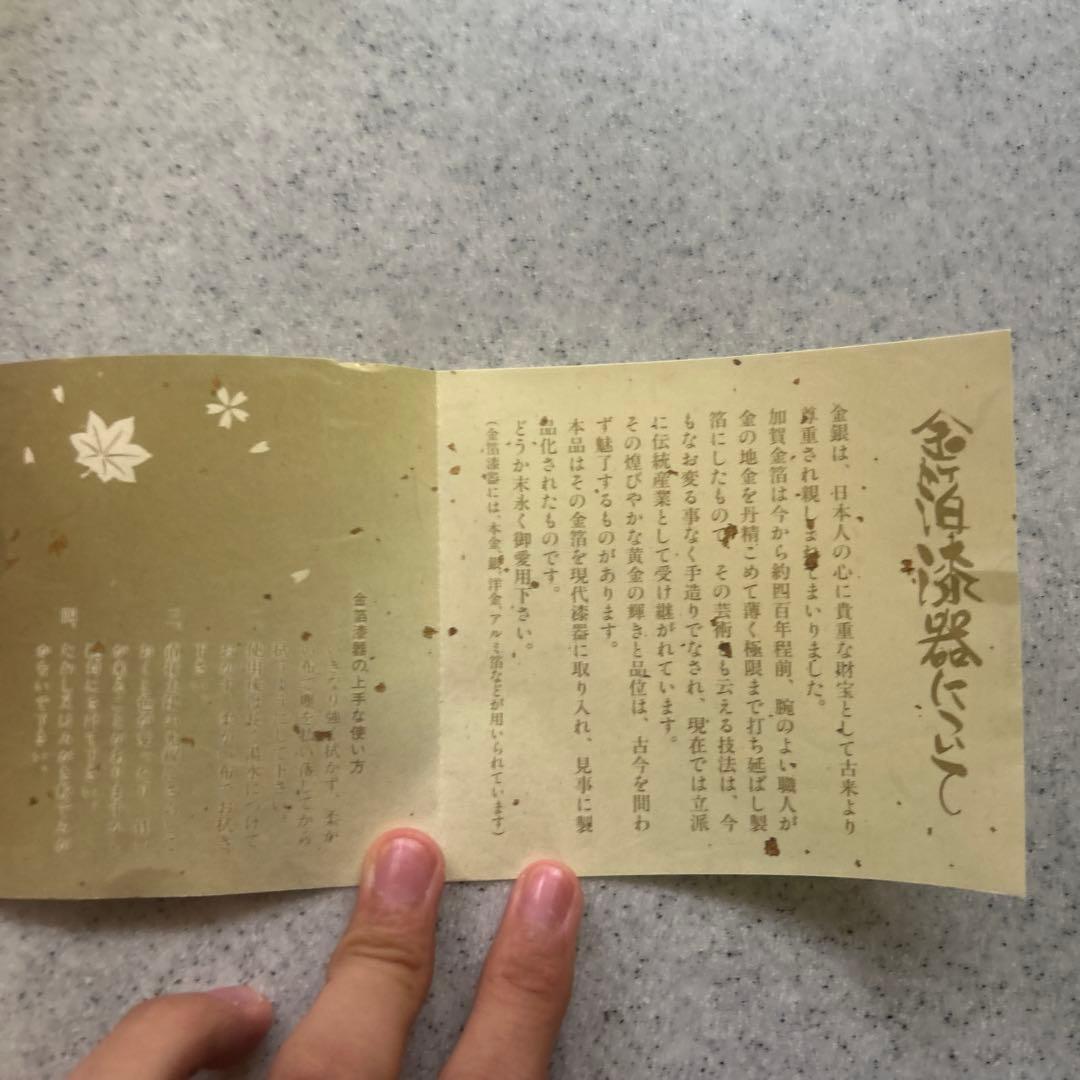 金箔漆器について
金銀は、日本人の心に貴重な財宝として古来より
尊重され親しまれてまいりました。
加賀金箔は今から約四百年程前、腕のよい職人が
金の地金を丹精こめて薄く極限まで打ち延ばし製
箔にしたもので、その芸術とも云える技法は、今
もなお変る事なく手造りでなされ、現在では立派
に伝統産業として受け継がれています。
その煌びやかな黄金の輝きと品位は、古今を問わ
ず魅了するものがあります。
本品はその金箔を現代漆器に取り入れ、見事に製
品化されたものです。
どうか末永く御愛用下さい。
(金箔漆器には、本金、銀、洋金、アルミ箔などが用いられています)
金箔漆器の上手な使い方
きなり強く拭かず、柔か
い布で塵を払い落してから
拭くようにして下さい。
使用後は長く湯水につけて